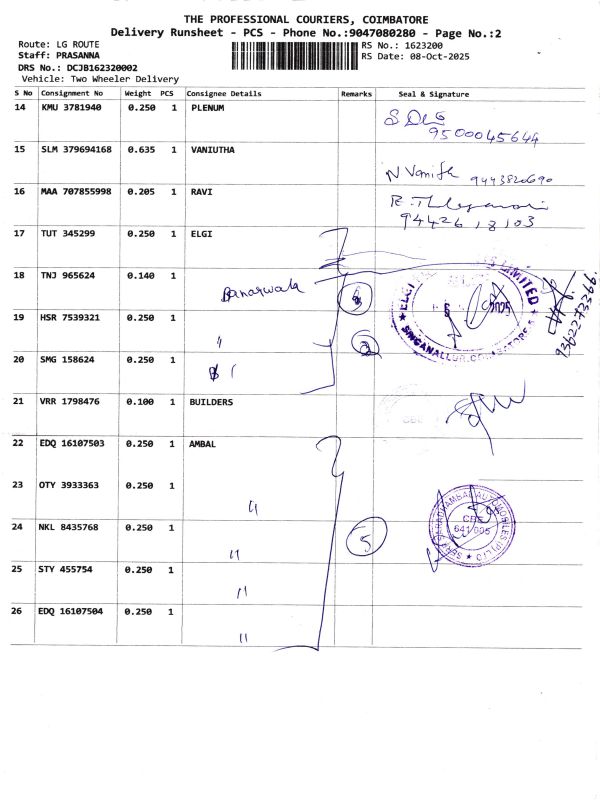 THE PROFESSIONAL COURIERS, COIMBATORE
Delivery Runsheet - PCS - Phone No.:9047080280 - Page No.:2
Route: LG ROUTE
RS No.: 1623200
Staff: PRASANNA
RS Date: 08-Oct-2025
DRS No.: DCJB162320002
Vehicle: Two Wheeler Delivery
S No Consignment No Weight PCS Consignee Details Remarks Seal & Signature
14 KMU 3781940 0.250 1 PLENUM
9500045644
15 SLM 379694168 0.635 1 VANIUTHA
N Vanith 9443820690
16 MAA 707855998 0.205 1 RAVI
9442618103
17 TUT 345299 0.250 1 ELGI
18 TNJ 965624 0.140 1
ELGI LIMITED
2025
SINGANALLUR, COIMBATORE-5
9362273366
19 HSR 7539321 0.250 1 "
20 SMG 158624 0.250 1
21 VRR 1798476 0.100 1 BUILDERS
22 EDQ 16107503 0.250 1 AMBAL
23 OTY 3933363 0.250 1 "
24 NKL 8435768 0.250 1 " 5
AMBAL AUTOMOBILES (P) LTD
CBE
641 005
25 STY 455754 0.250 1 "
26 EDQ 16107504 0.250 1 "